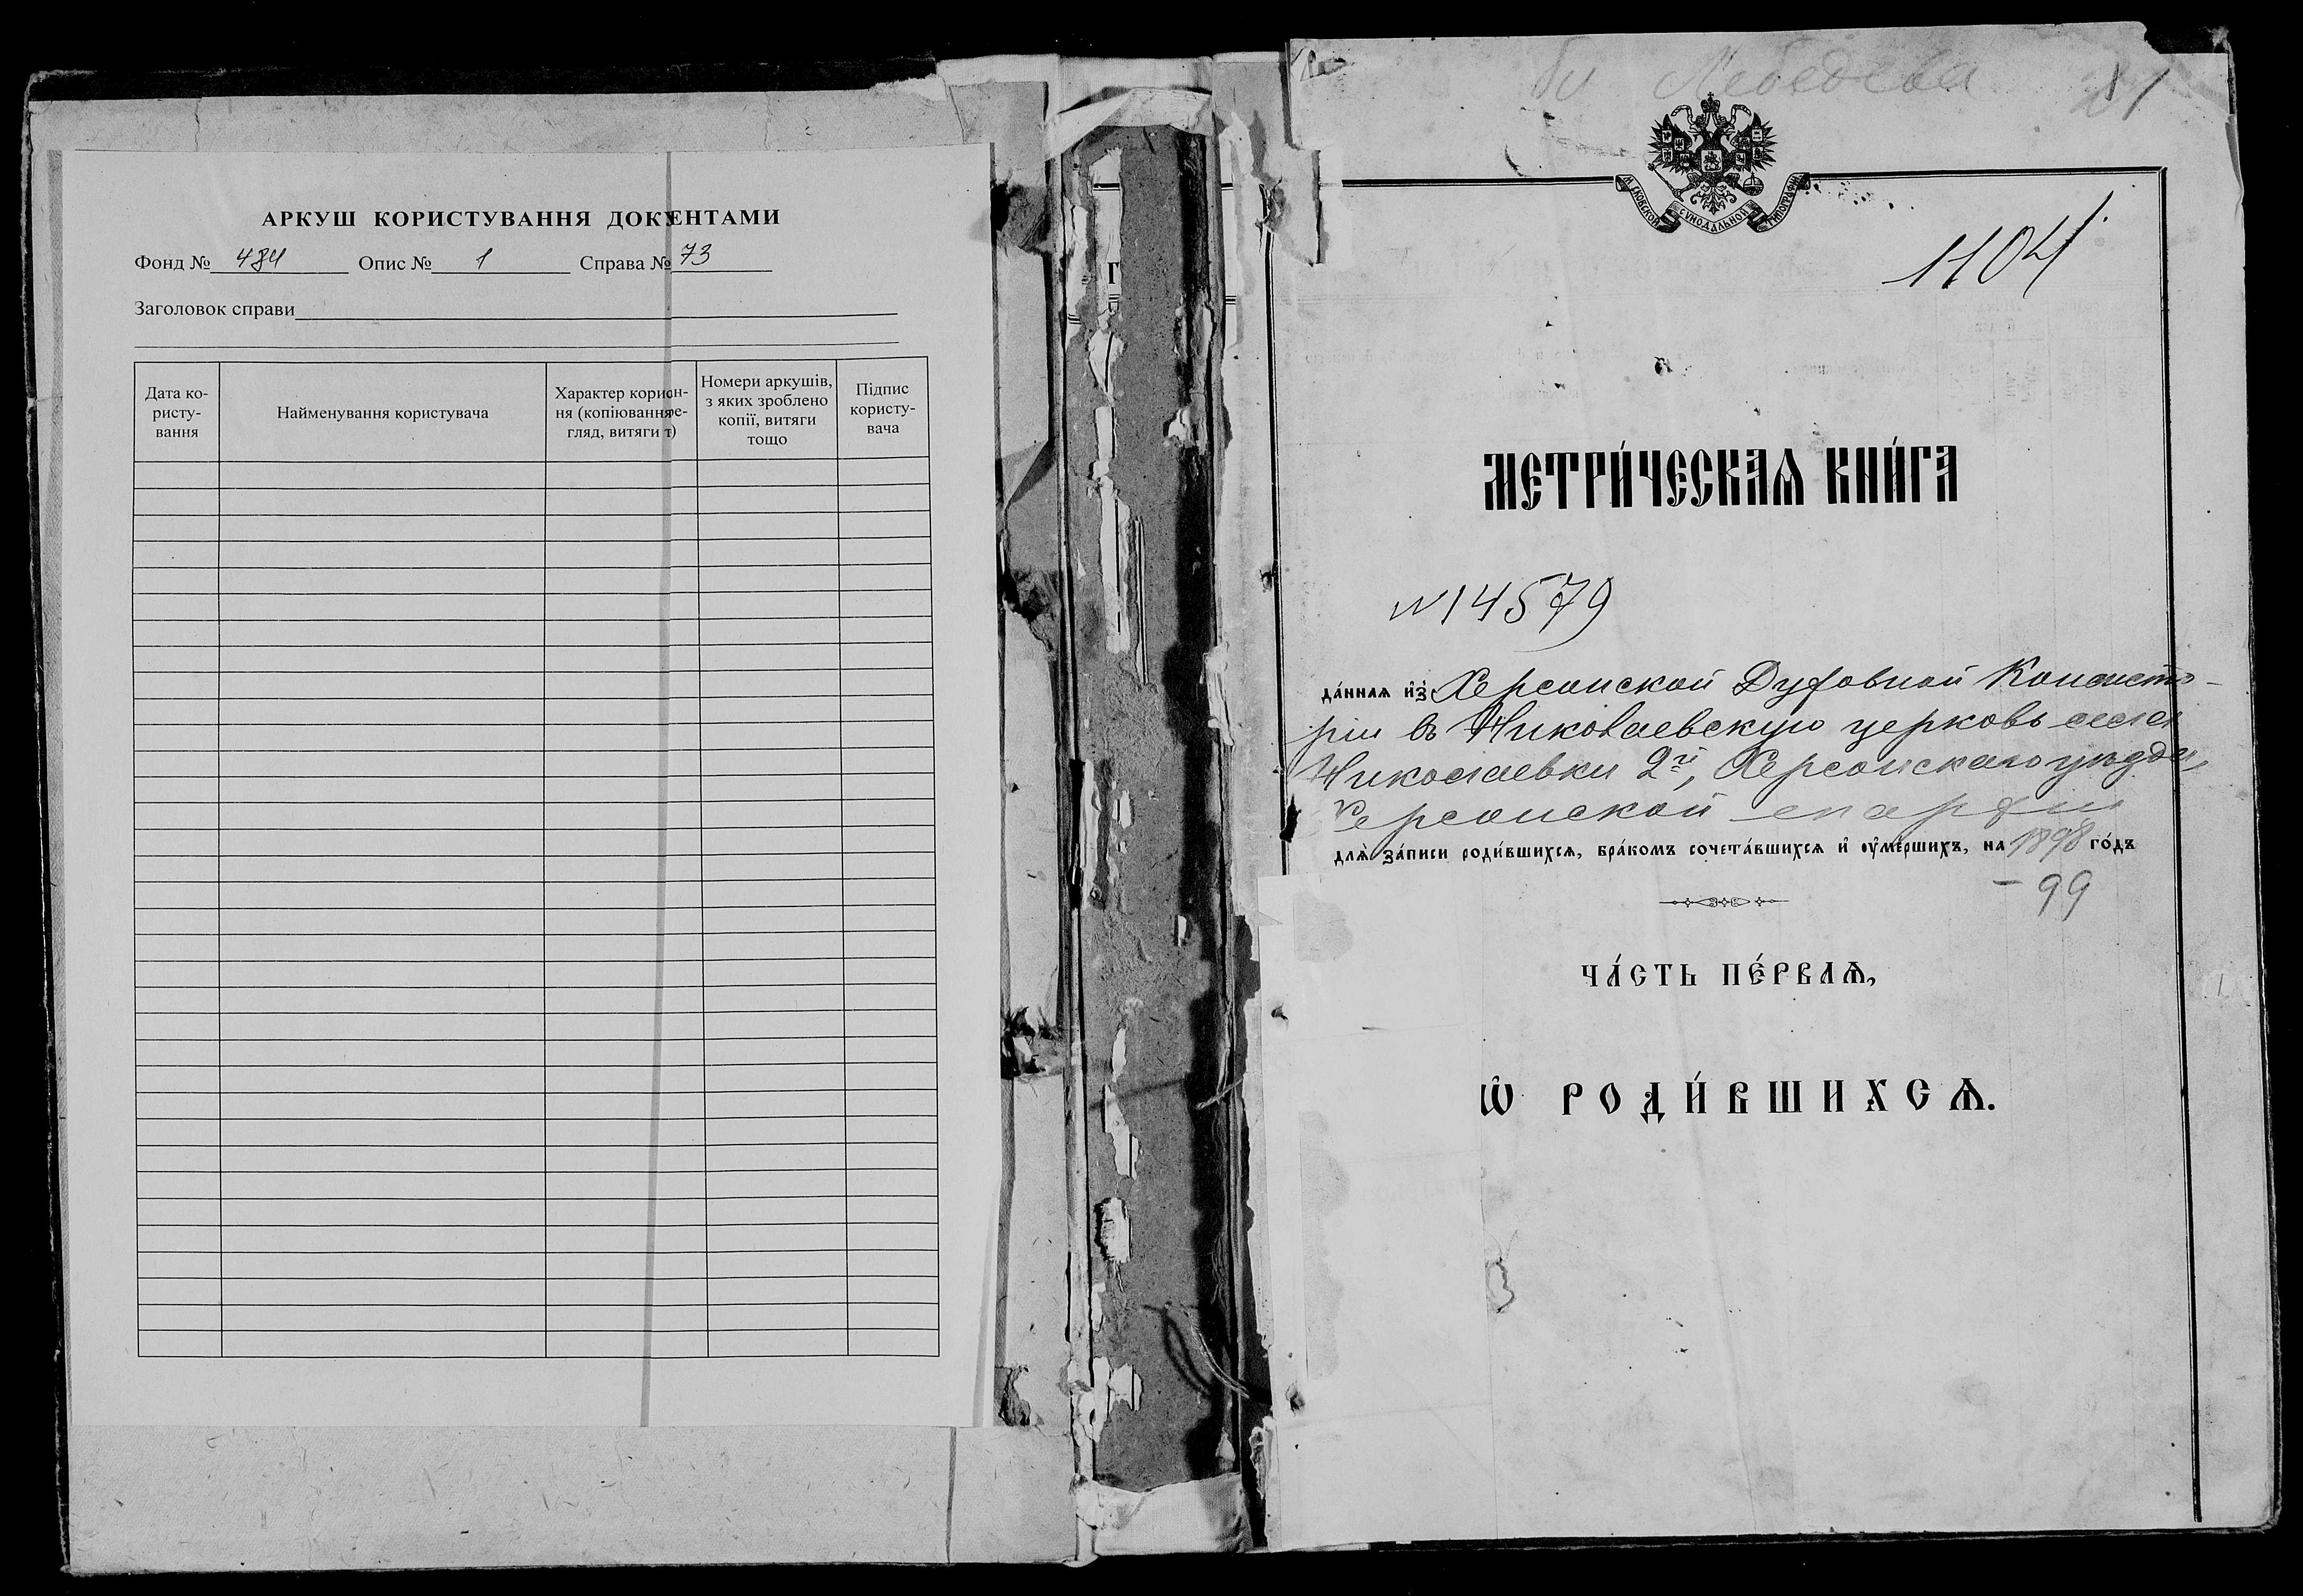 АРКУШ КОРИСТУВАННЯ ДОКУЕНТАМИ
Фонд № 484 Опис № 1 Справа № 73
Заголовок справи
Дата ко-
ристу-
вання
Найменування користувача
Характер корисн-
ня (копіювання е-
гляд, витяги т)
Номери аркушів,
з яких зроблено
копії, витяги
тощо
Підпис
користу-
вача
Лебедева
МОСКОВСКОЙ СѴНОДАЛЬНОЙ ТИПОГРАФІИ
1104
МЕТРИ́ЧЕСКАѦ КНИ́ГА
№14579
да́ннаѧ и҆з̾ Херсонской Духовной Консисто-
ріи въ Николаевскую церковь села
Николаевки 2й, Херсонскаго уѣзда,
Херсонской епархіи
длѧ̀ за́писи роди́вшихсѧ, бра́комъ сочета́вшихсѧ и҆ оу҆ме́ршихъ, на 1898 го́дъ
- 99
ЧА́СТЬ ПЕ́РВАѦ,
Ѽ РОДИ́ВШИХСѦ.